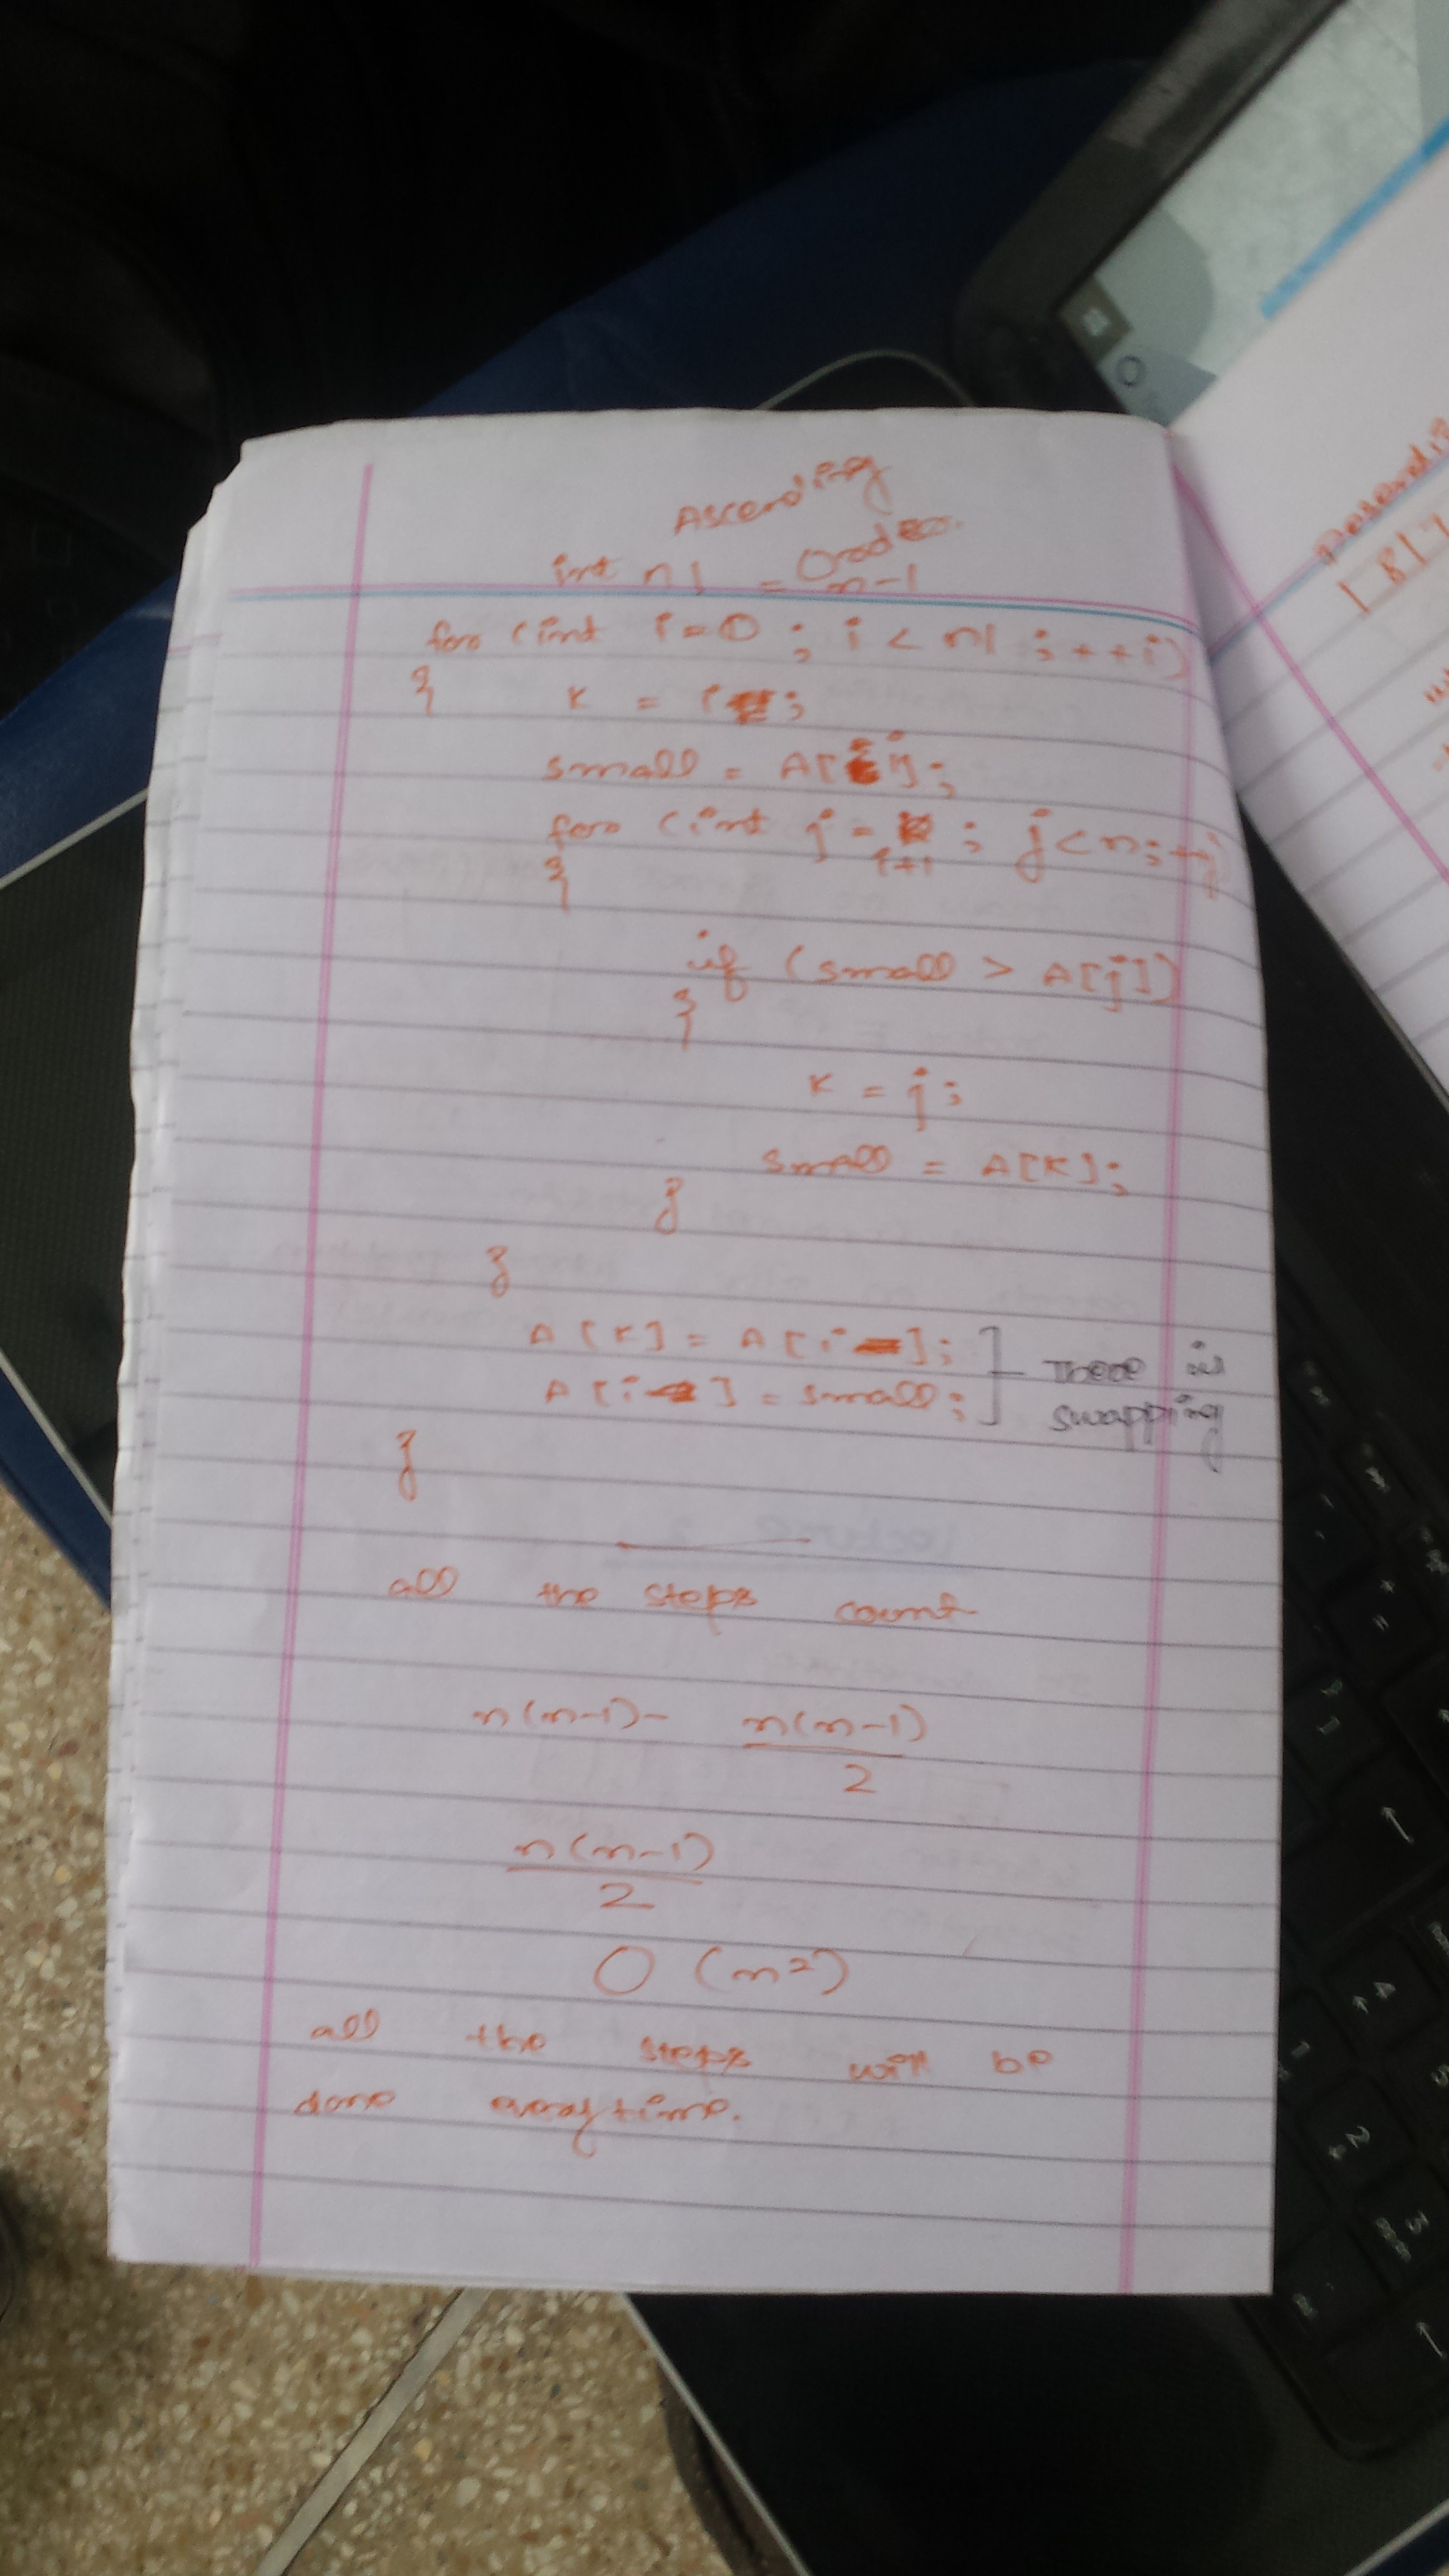 Ascending
Order.
int n1 = n-1
for (int i=0 ; i < n1 ; ++i)
{ K = i ;
small = A[i];
for (int j = i+1 ; j<n; ++j
{
if (small > A[j])
{
K = j;
small = A[K];
}
}
A[K] = A[i];
A[i] = small;
There is
swapping
}
all the steps count
n(n-1) - n(n-1)
2
n(n-1)
2
O (n²)
all the steps will be
done everytime.